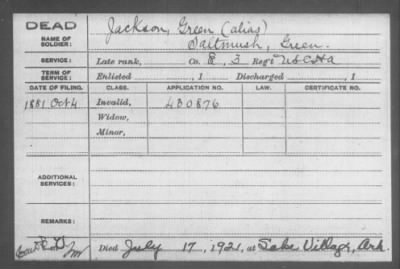 DEAD
NAME OF SOLDIER: Jackson, Green (alias)
Saltmush, Green.
SERVICE: Late rank, Co. E, 3 Reg't U S C H A
TERM OF SERVICE: Enlisted , 1 Discharged , 1
DATE OF FILING. CLASS. APPLICATION NO. LAW. CERTIFICATE NO.
1881 Oct 4 Invalid, 430876
Widow,
Minor,
ADDITIONAL SERVICES:
REMARKS:
Died July 17, 1921, at Lake Village, Ark.